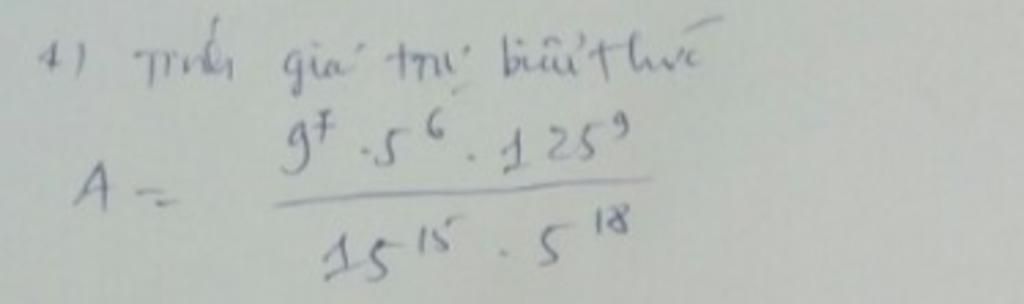 1) Tính giá trị biểu thức
A = \frac{9^7 . 5^6 . 125^9}{15^{15} . 5^{18}}